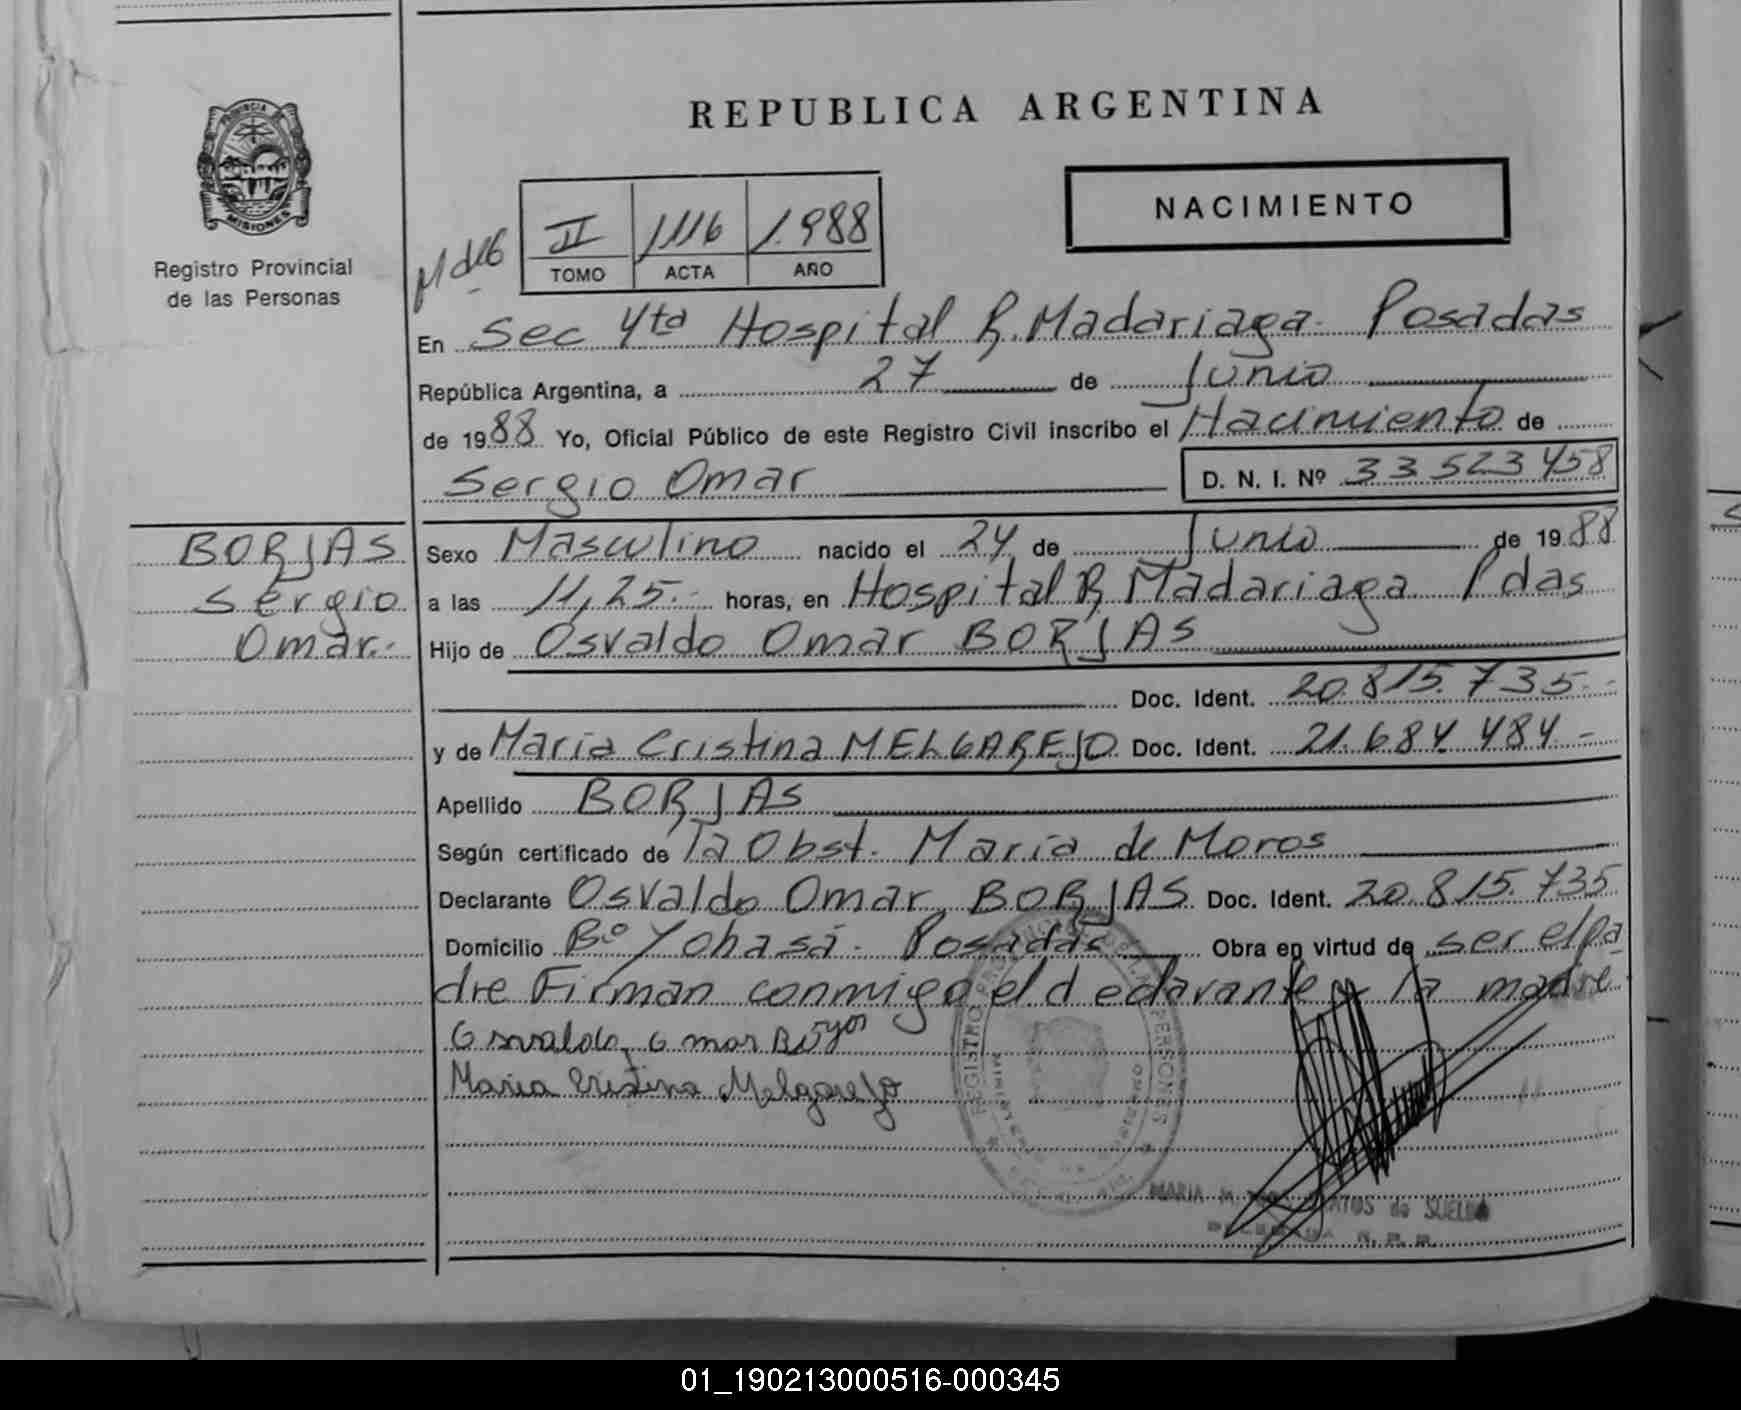 REPUBLICA ARGENTINA
PROVINCIA DE
MISIONES
Registro Provincial
de las Personas
II 1116 1.988
TOMO ACTA AÑO
NACIMIENTO
En Sec 4ta Hospital R. Madariaga. Posadas
República Argentina, a 27 de Junio
de 1988 Yo, Oficial Público de este Registro Civil inscribo el Nacimiento de
Sergio Omar D. N. I. Nº 33523458
BORJAS
Sergio
Omar.-
Sexo Masculino nacido el 24 de Junio de 1988
a las 11,25.- horas, en Hospital R, Madariaga Pdas
Hijo de Osvaldo Omar BORJAS
Doc. Ident. 20.815.735.-
y de Maria Cristina MELGAREJO Doc. Ident. 21.684.484.-
Apellido BORJAS
Según certificado de la Obst. Maria de Moros
Declarante Osvaldo Omar BORJAS Doc. Ident. 20.815.735
Domicilio Bº Yohasá. Posadas Obra en virtud de ser el pa
dre Firman conmigo el declarante y la madre.
Osvaldo Omar Borjas
Maria Cristina Melgarejo
REGISTRO PERSONAS
MARIA M. de SUELDO
01_190213000516-000345